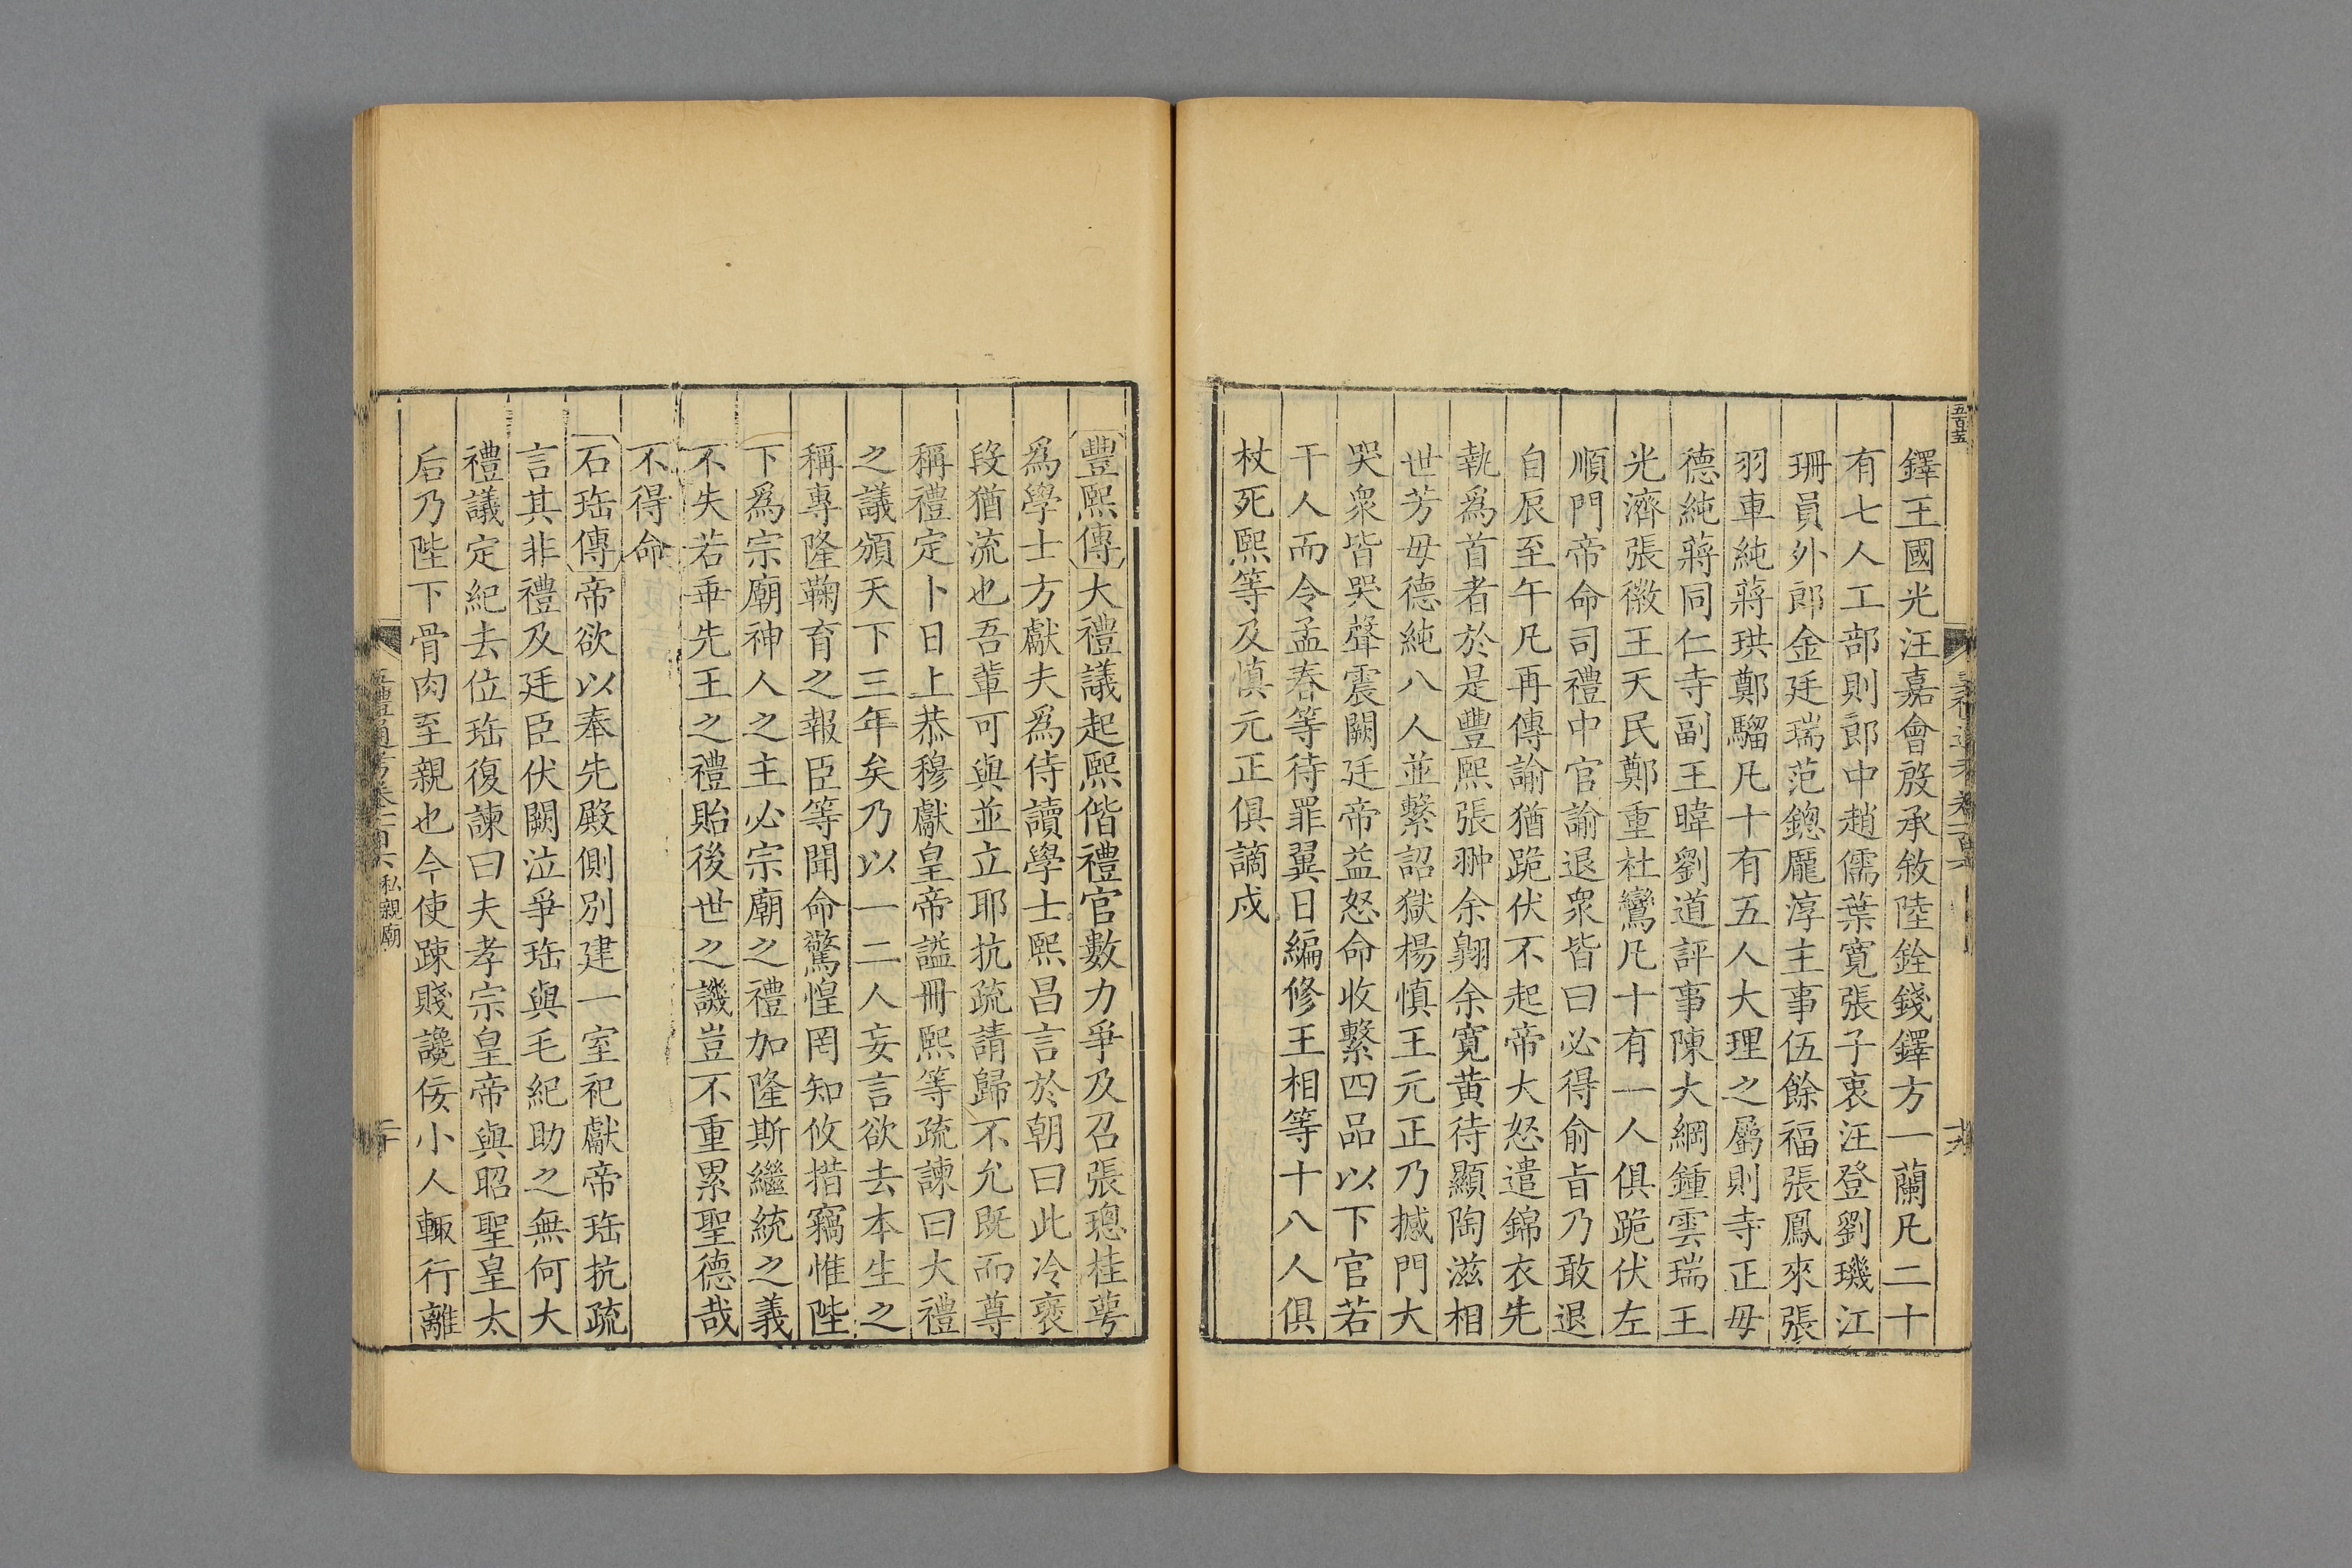 鐸王國光汪嘉會殷承敘陸銓錢鐸方一蘭凡二十
有七人工部則郎中趙儒葉寬張子衷汪登劉璣江
珊員外郎金廷瑞范鏓龎淳主事伍餘福張鳳來張
羽車純蔣珙鄭騮凡十有五人大理之屬則寺正毋
德純蔣同仁寺副王暐劉道評事陳大綱鍾雲瑞王
光濟張徽王天民鄭重杜鸞凡十有一人俱跪伏左
順門帝命司禮中官諭退衆皆曰必得俞旨乃敢退
自辰至午凡再傳諭猶跪伏不起帝大怒遣錦衣先
執爲首者於是豐熙張翀余翺余寬黃待顯陶滋相
世芳毋德純八人並繫詔獄楊慎王元正乃撼門大
哭衆皆哭聲震闕廷帝益怒命收繫四品以下官若
干人而令孟春等待罪翼日編修王相等十八人俱
杖死熙等及慎元正俱謫戍
豐熙傳大禮議起熙偕禮官數力爭及召張璁桂萼
爲學士方獻夫爲侍讀學士熙昌言於朝曰此冷褒
段猶流也吾輩可與並立耶抗疏請歸不允既而尊
稱禮定卜日上恭穆獻皇帝謚冊熙等疏諫曰大禮
之議頒天下三年矣乃以一二人妄言欲去本生之
稱專隆鞠育之報臣等聞命驚惶罔知攸措竊惟陛
下爲宗廟神人之主必宗廟之禮加隆斯繼統之義
不失若乖先王之禮貽後世之譏豈不重累聖德哉
不得命
石珤傳帝欲以奉先殿側別建一室祀獻帝珤抗疏
言其非禮及廷臣伏闕泣爭珤與毛紀助之無何大
禮議定紀去位珤復諫曰夫孝宗皇帝與昭聖皇太
后乃陛下骨肉至親也今使踈賤讒佞小人輙行離
私親廟
二十